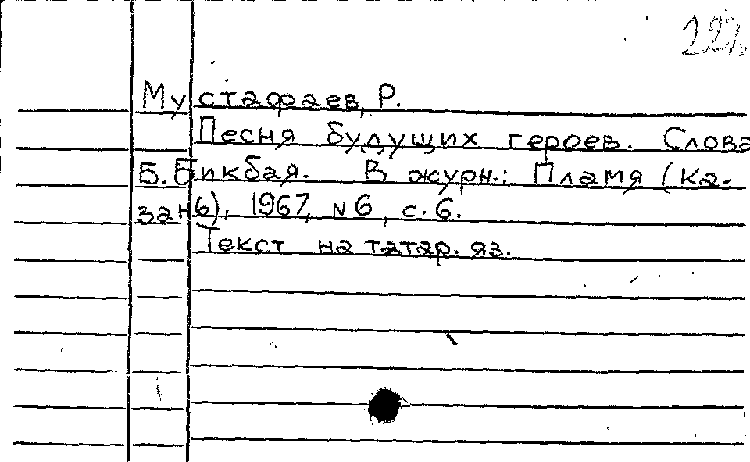 Мустафаев, Р.
Песня будущих героев. Слова
Б. Бикбая. В журн.: Пламя (Ка-
зань), 1967, N 6, с. 6.
Текст на татар. яз.